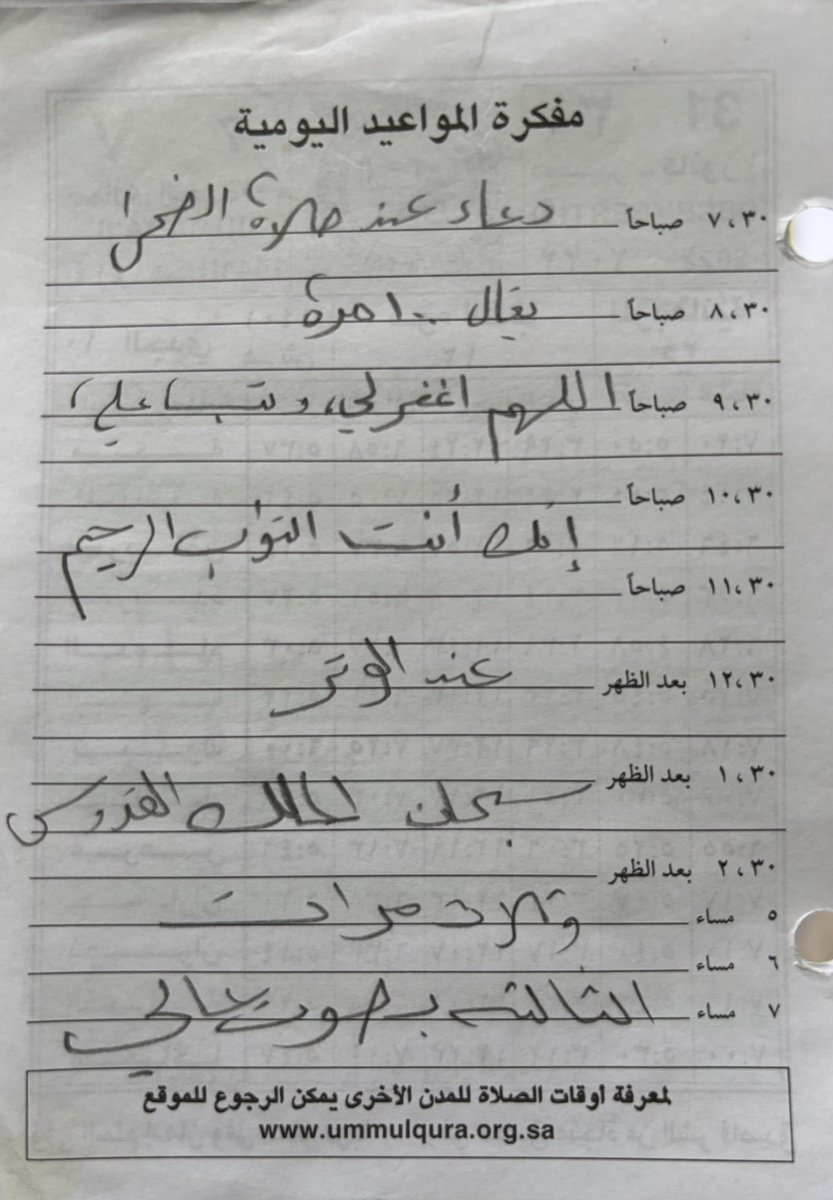 مفكرة المواعيد اليومية
٧،٣٠ صباحاً دعاء عند صلاة الضحى
٨،٣٠ صباحاً يقال ١٠٠ مرة
٩،٣٠ صباحاً اللهم اغفر لي، وتب علي،
١٠،٣٠ صباحاً
إنك أنت التواب الرحيم
١١،٣٠ صباحاً
١٢،٣٠ بعد الظهر عند الوتر
١،٣٠ بعد الظهر
سبحان الملك القدوس
٢،٣٠ بعد الظهر
٥ مساء وثلاث مرات
٦ مساء
٧ مساء الثالثه بصوت عالي
لمعرفة أوقات الصلاة للمدن الأخرى يمكن الرجوع للموقع
www.ummulqura.org.sa